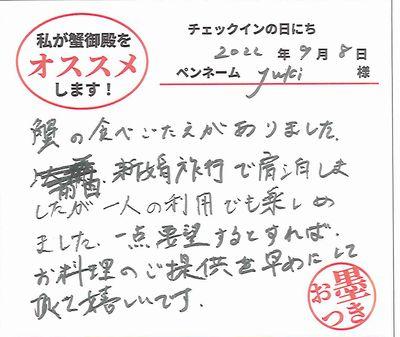 私が蟹御殿を
オススメ
します！
チェックインの日にち
2022 年 9 月 8 日
ペンネーム yuki 様
蟹の食べごたえがありました。
前回 新婚旅行で宿泊しま
したが一人の利用でも楽しめ
ました。一点要望するとすれば、
お料理のご提供を早めにして
頂くと嬉しいです。
お墨つき